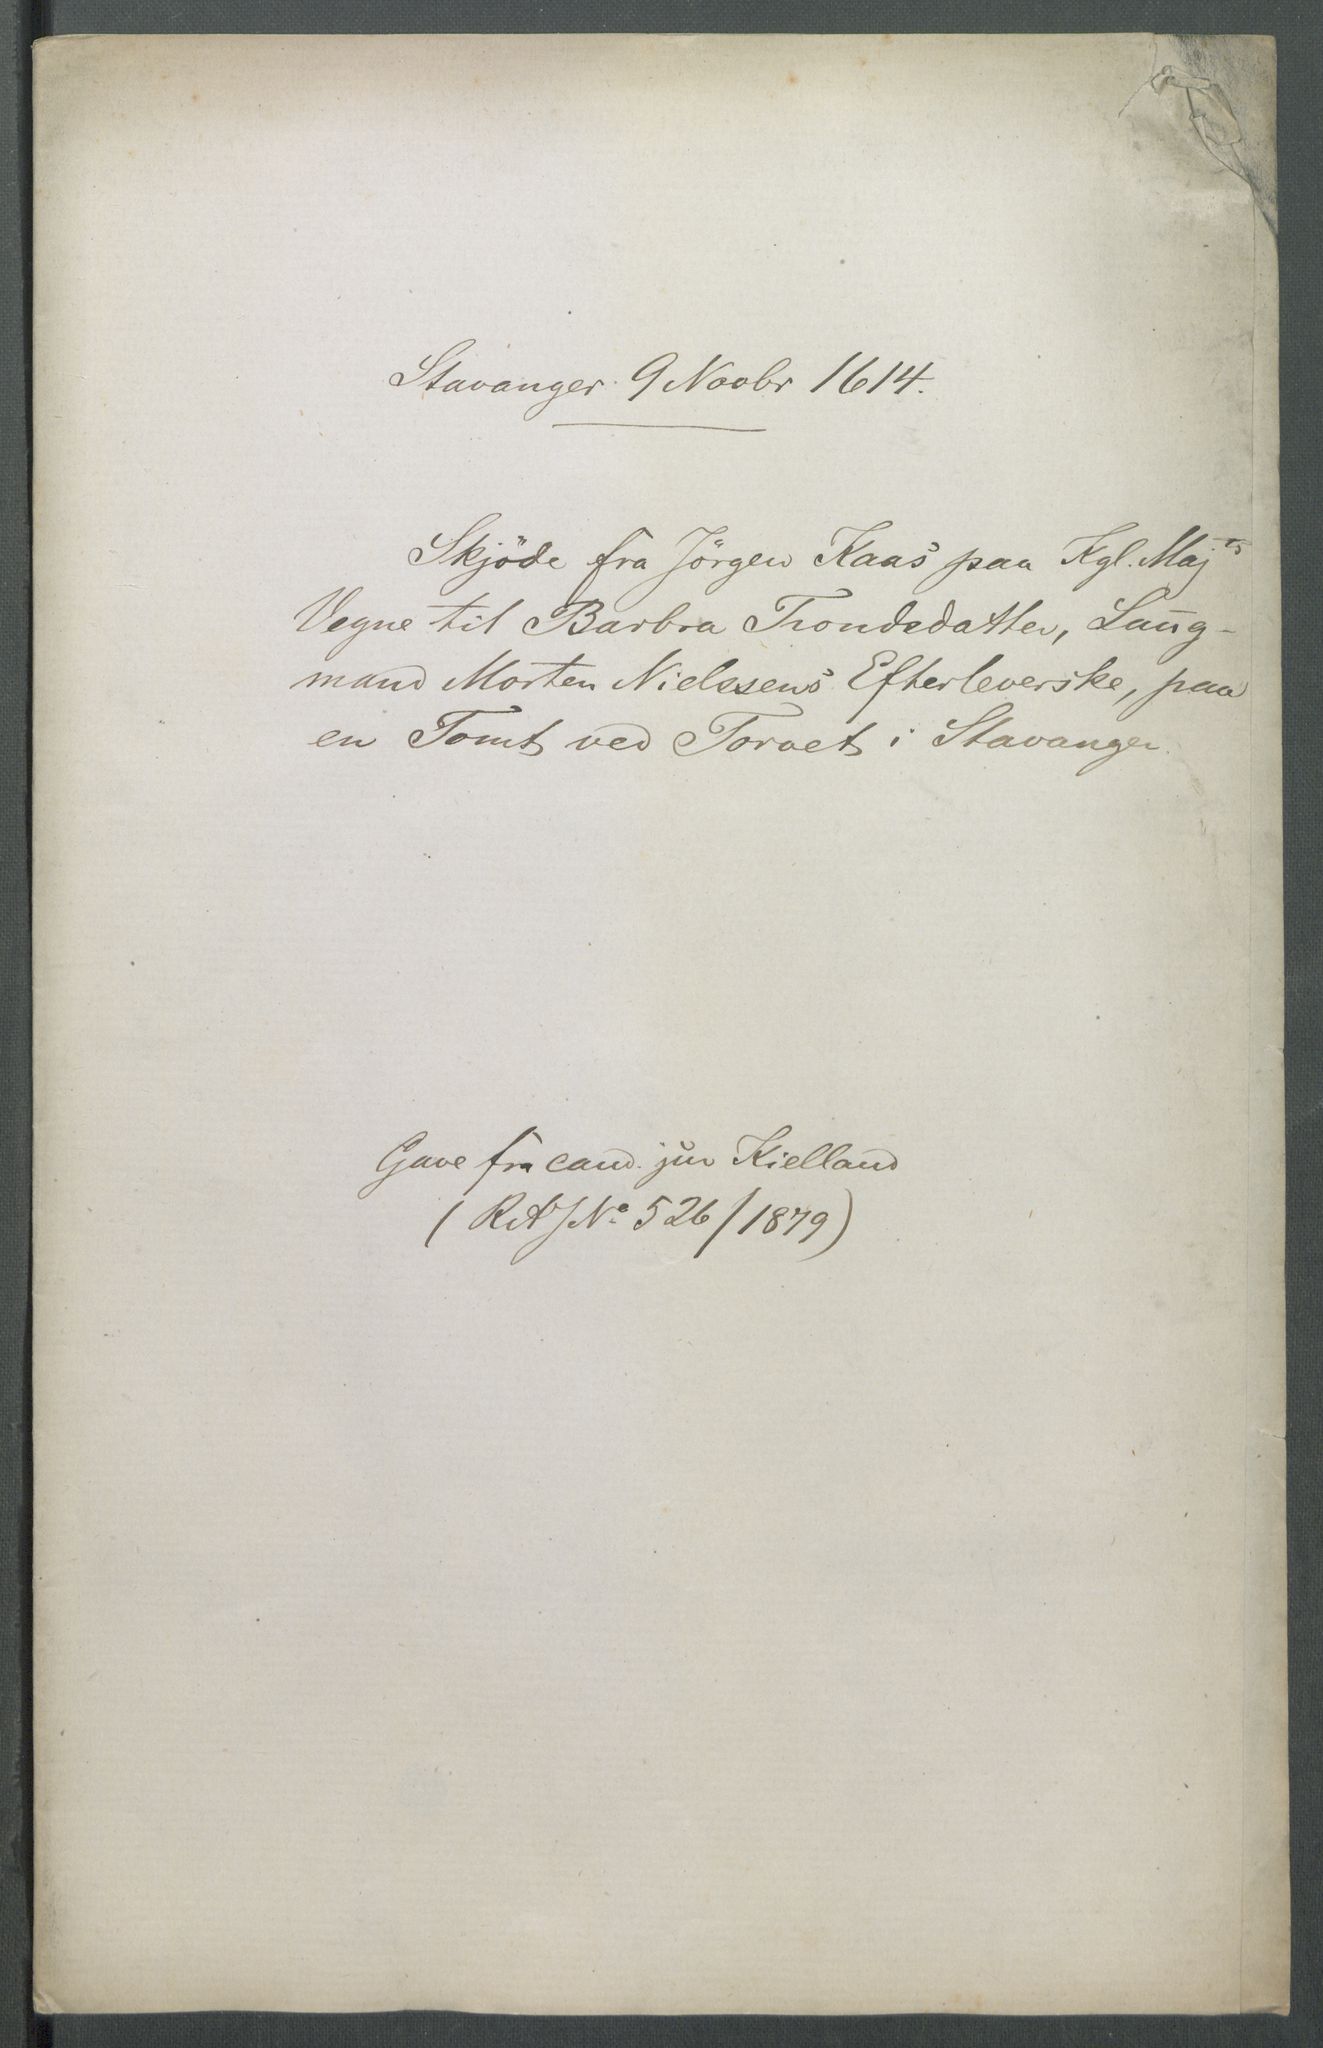 Stavanger 9 Novbr 1614.
Skjöde fra Jörgen Kaas paa Kgl. Maj ts
Vegne til Barbra Trondsdatter, Laug-
mand Morten Nielssens Efterleverske, paa
en Tomt ved Torvet i Stavanger.
Gave fra cand. jur Kielland
(RAJNo 526/1879)